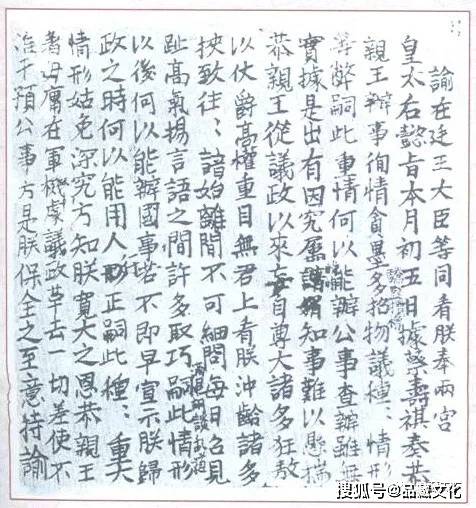 諭在廷王大臣等同看朕奉兩宮
皇太后懿旨本月初五日據蔡壽祺奏恭
親王辦事徇情貪墨多招物議種〻情形
等弊嗣此重情何以能辦公事查辦雖無
實據是出有因究屬知事難以懸揣
恭親王從議政以來妄自尊大諸多狂敖
以仗爵高權重目無君上看朕沖齡諸多
挾致往〻諳始離間不可細問每日召見
趾高氣揚言語之間許多取巧嗣此情形
以後何以能辦國事若不即早宣示朕歸
政之時何以能用人行正嗣此種〻重大
情形姑免深究方知朕寬大之恩恭親王
着毋庸在軍機處議政革去一切差使不
准干預公事方是朕保全之至意特諭
搜狐号@品鉴文化